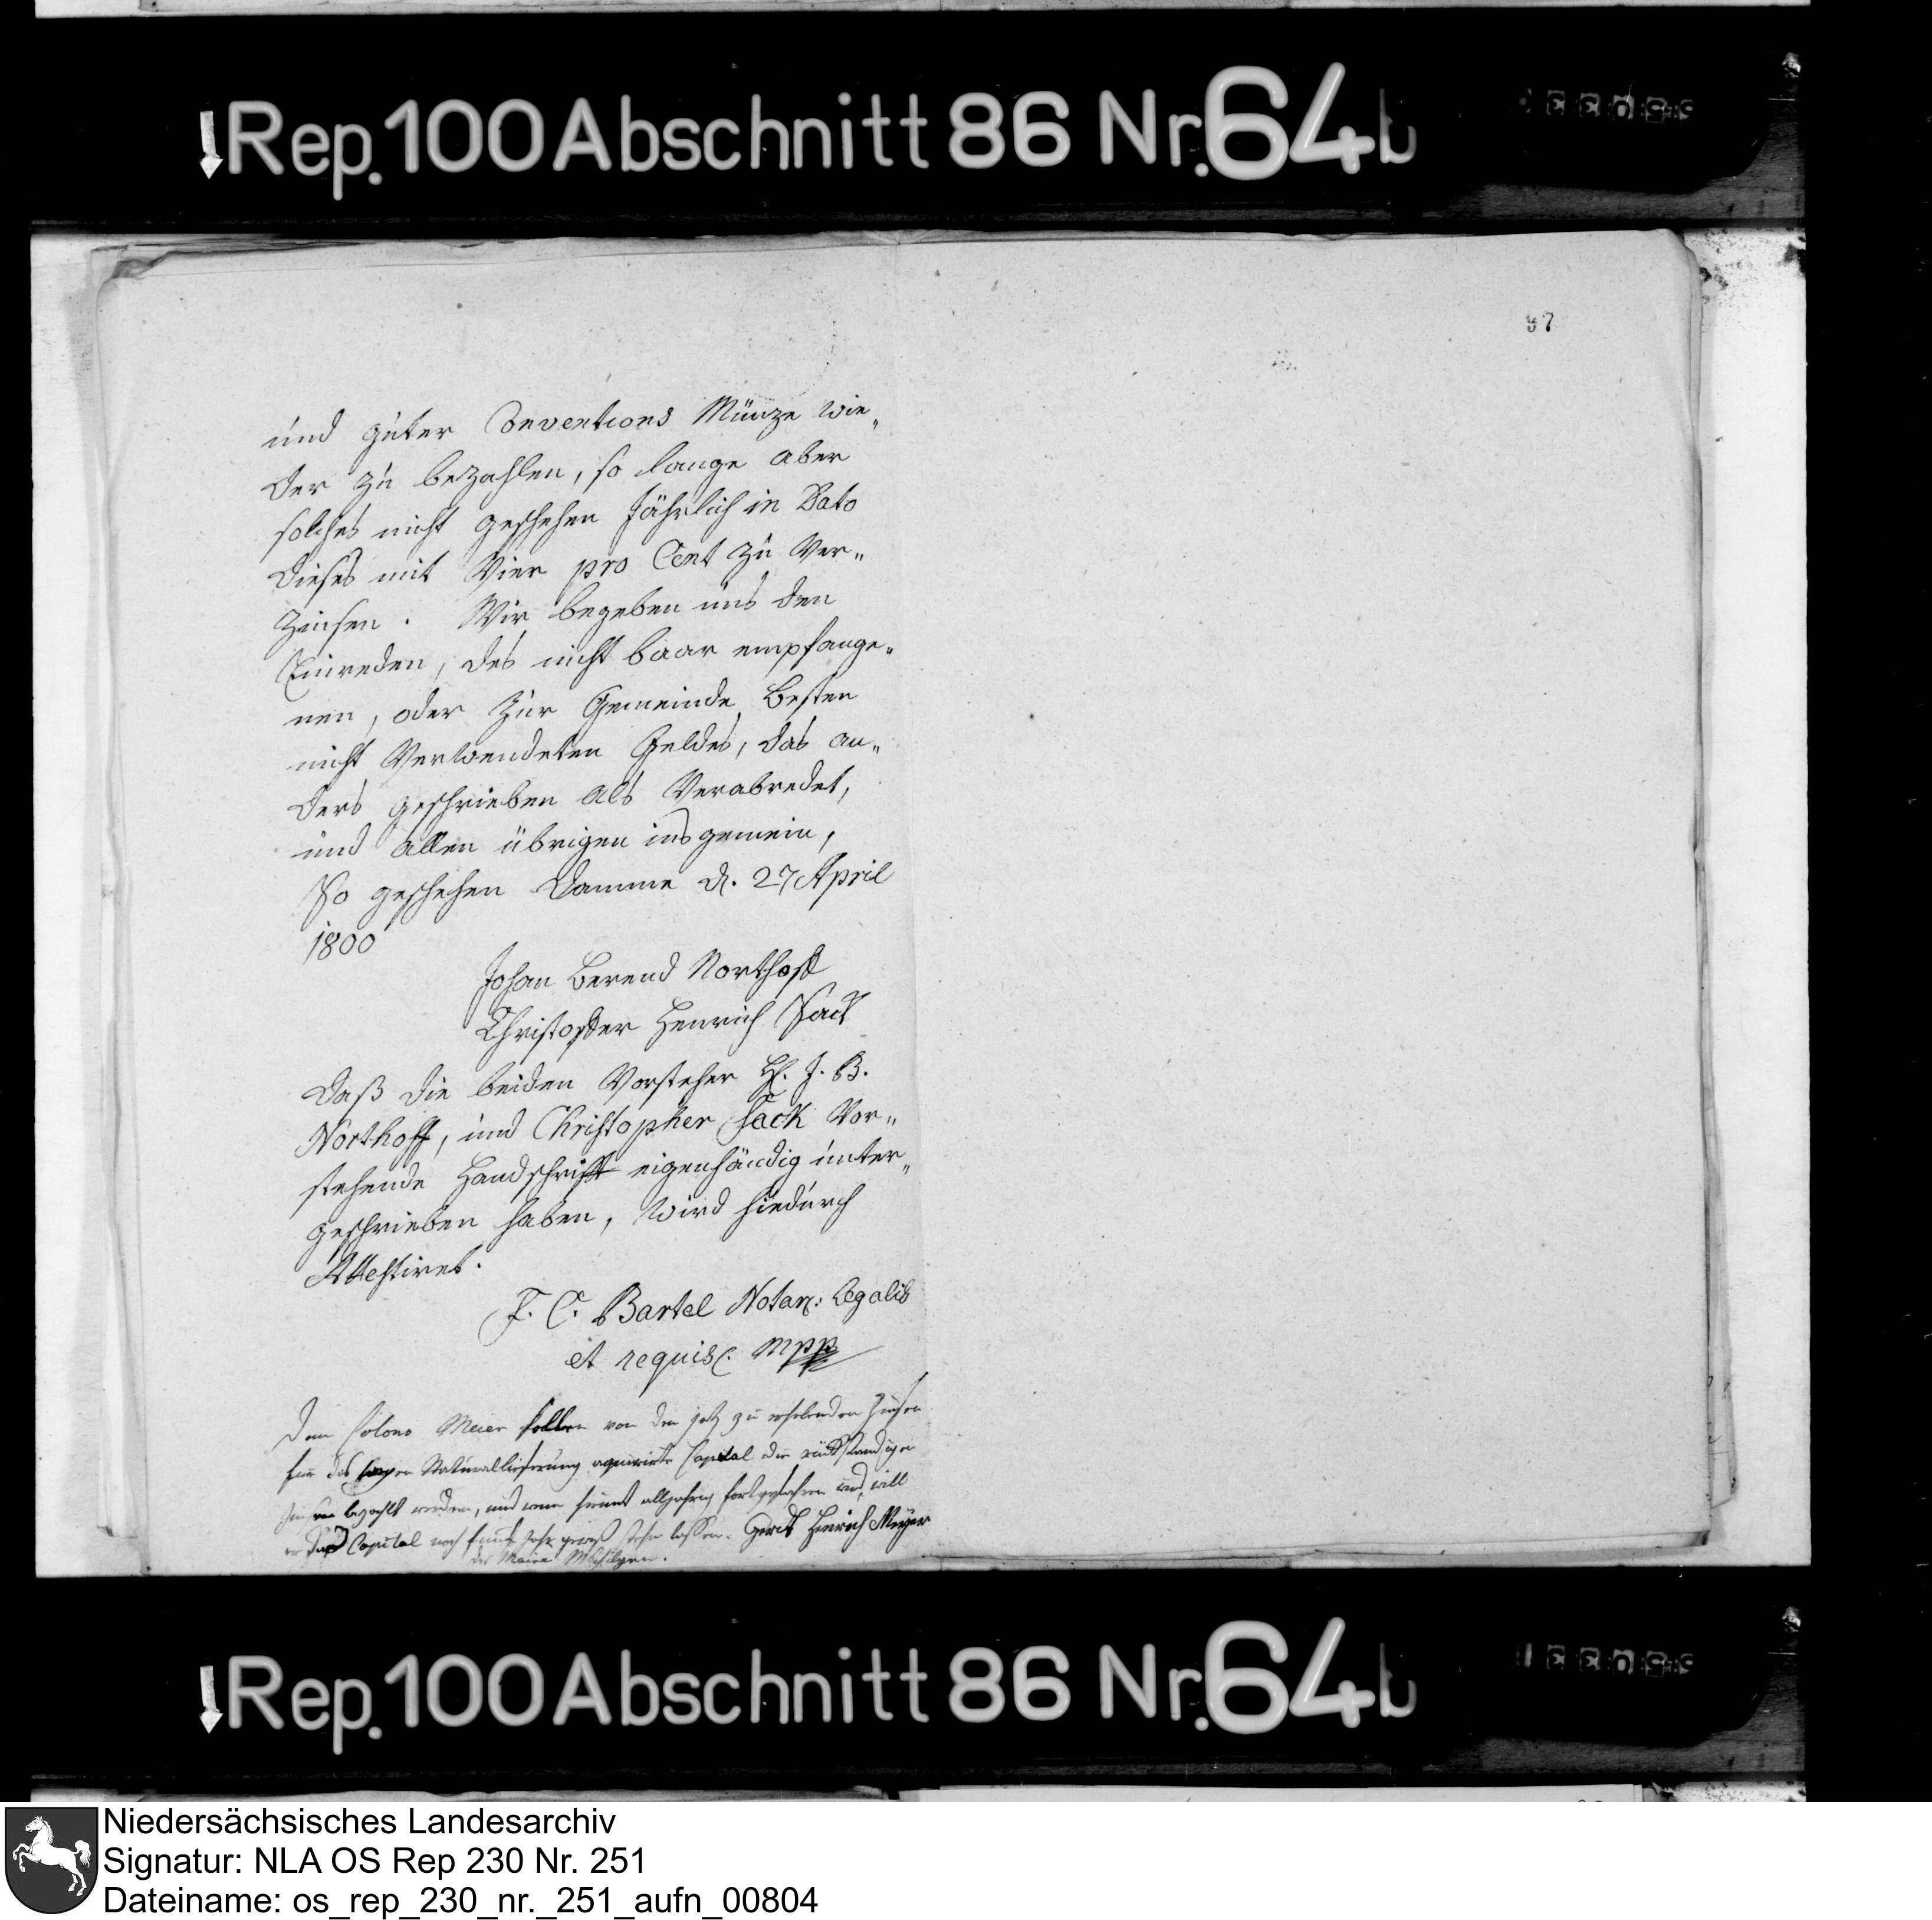 Rep. 100 Abschnitt 86 Nr. 64b
97
und guter Conventions Münze wie„
der zu bezahlen, so lange aber
solches nicht geschehen Jährlich in Dato
dieses mit Vier pro Cent zu Ver„
Zinsen. Wir begeben uns den
Einreden, des nicht baar empfange„
nen, oder Zur Gemeinde Besten
nicht Verwendeten Geldes, das an„
ders geschrieben als Verabredet,
und allen übrigen ins gemein,
So geschehen Damme d. 27 April
1800
Johan Berend Northoff
Christoffer Henrich Sack
Daß die beiden Vorsteher H. J. B.
Northoff, und Christopher Sack Vor„
stehende Handschrift eigenhändig unter„
geschrieben haben, wird hiedurch
Attestiret.
F. C. Bartel Notar: legalis
et requis. mpp
Dem Colono Meier sollen von den jetz zu erhebenden Zinsen
für das Naturallieferung Capital die rückständigen
Zinsen bezahlt werden, und wenn hiemit alljährig fortgefahren wird, will
er das Capital noch Jahr stehn lassen. Gerdt Henrich Meÿer
der Maire
Rep. 100 Abschnitt 86 Nr. 64b
Niedersächsisches Landesarchiv
Signatur: NLA OS Rep 230 Nr. 251
Dateiname: os_rep_230_nr._251_aufn_00804